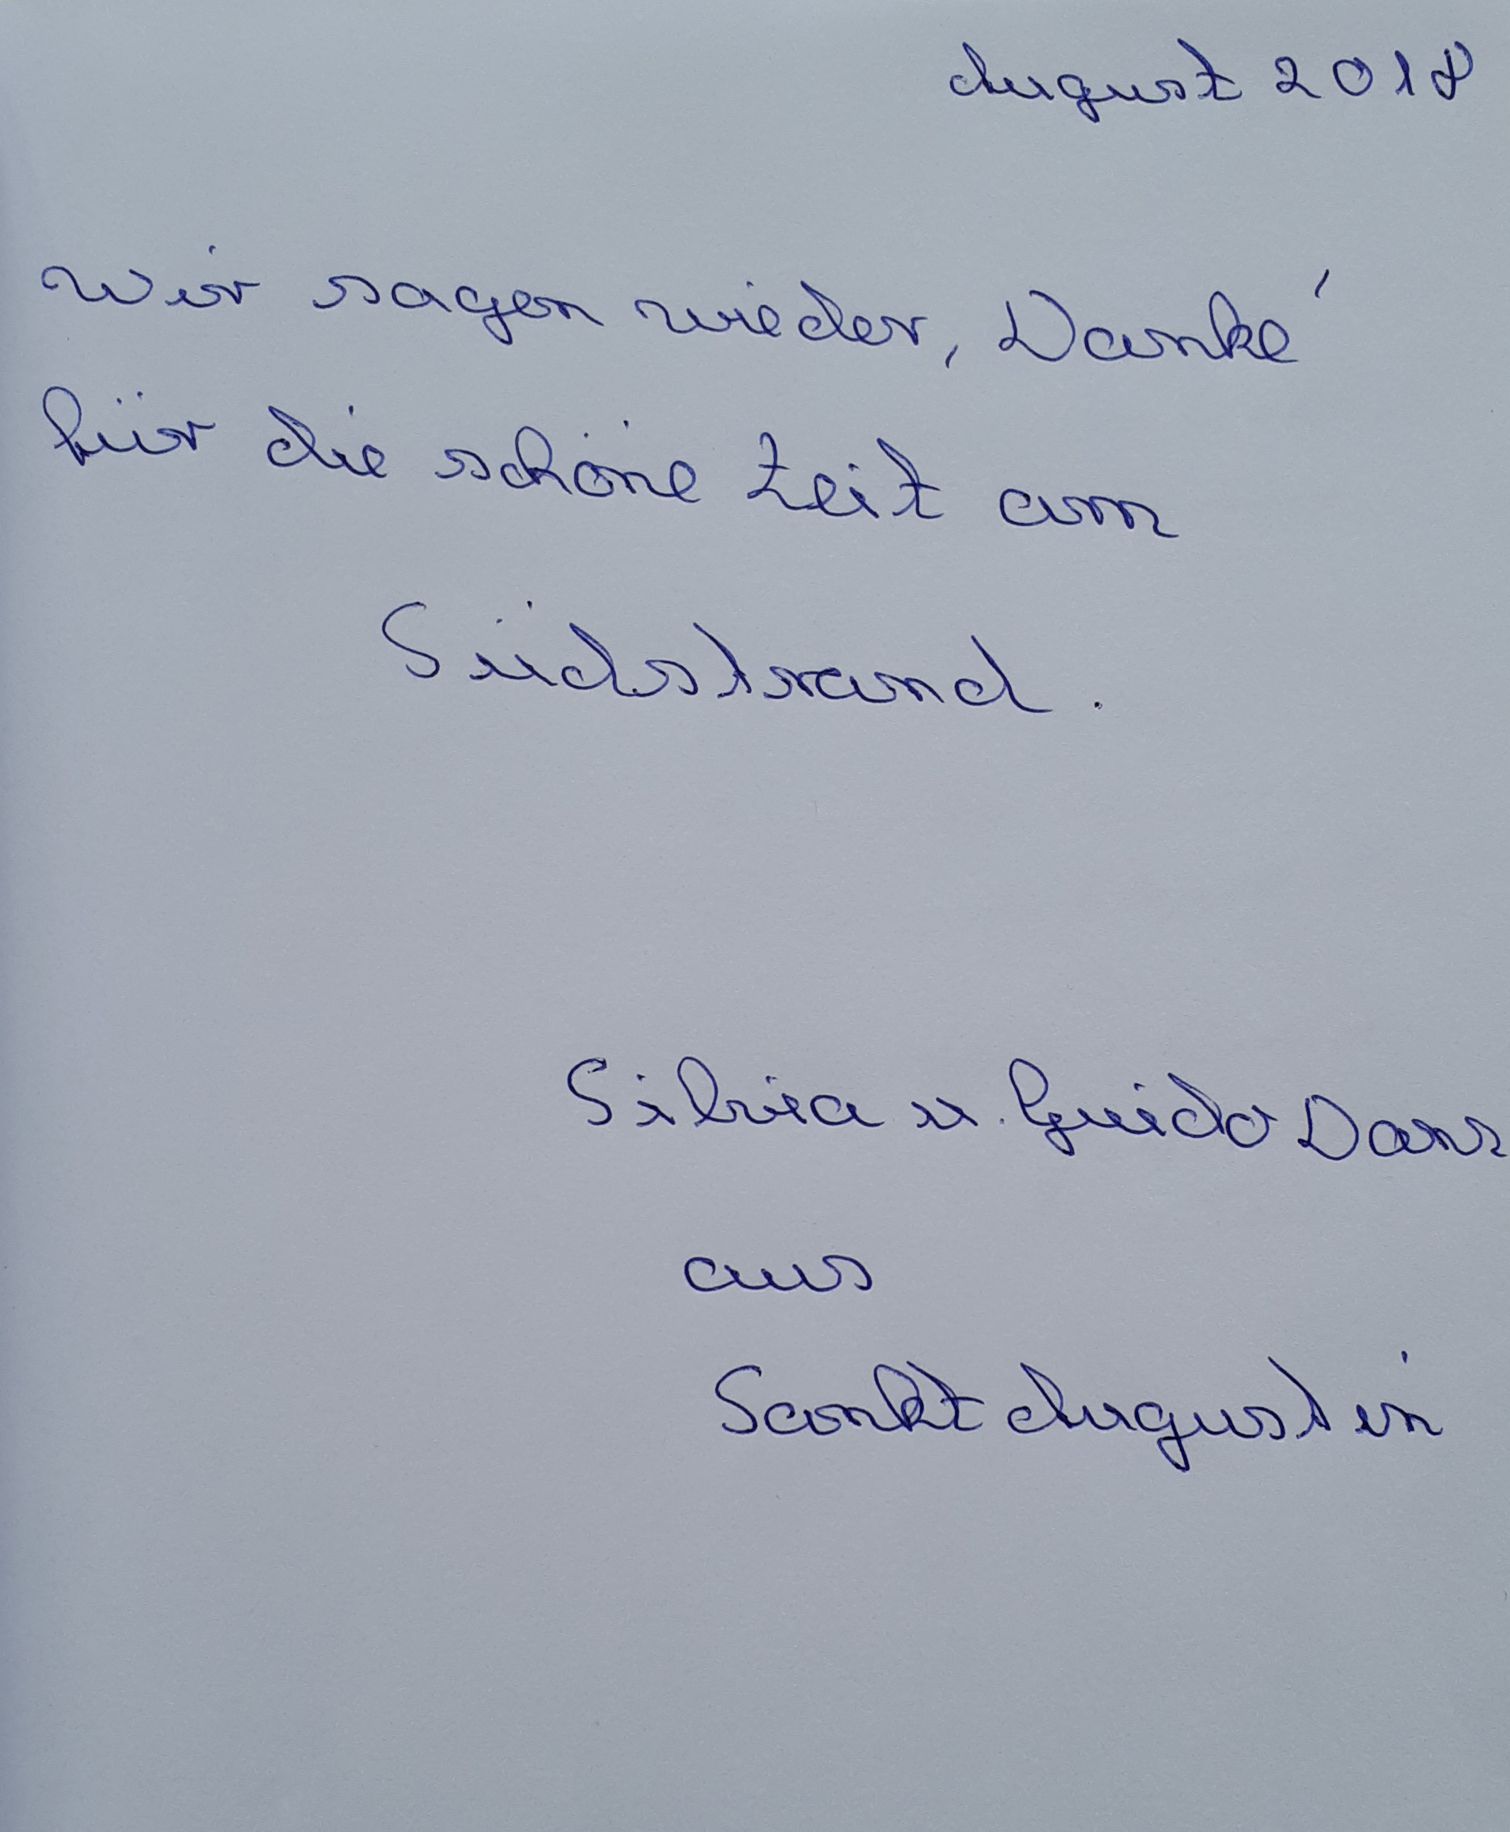 August 2018
wir sagen wieder, Danke'
für die schöne Zeit am
Südstrand.
Silvia u. Guido
aus
Sankt Augustin